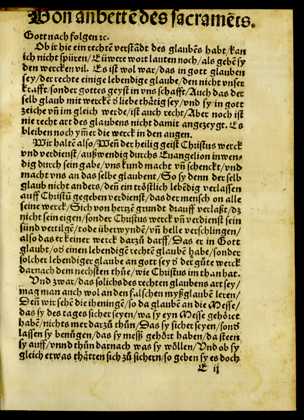 Von anbette des sacramēts.
Gott nach folgen ꝛc.
Ob ir hie ein rechtē verstādt des glaubēs habt / kan
ich nicht spüren / Eüwere wort lauten noch / als gebē sy
den wercken vil. Es ist wol war / das in gott glauben
sey / der rechte einige lebendige glaube / den nicht vnser
krafft sonder gottes geyst in vns schafft / Auch das der
selb glaub mit wercke d liebe thätig sey / vnd sy in gott
zeiche vñ im gleich werde / ist auch recht / Aber noch ist
nie recht art des glaubens nicht damit angezeygt. Es
bleiben noch ymer die werck in den augen.
Wir haltē also / Weñ der heilig geist Christus werck
vnd verdienst / außwendig durchs Euangelion inwen
dig durch sein gabe / vns kund macht vñ schenckt / vnd
macht vns an das selbe glaubent / So sy denn der selb
glaub nicht anders / deñ ein tröstlich lebedig verlassen
auff Christū gegeben verdienst / das der mensch on alle
seine werck / Sich von hertzē grunde drauff verlaßt / dz
nicht sein eigen / sonder Christus werck vñ verdienst sein
sünd vertilgē / tode überwyndē / vñ helle verschlingen /
also das er keiner werck darzū darff / Das er in Gott
glaubt / oñ einen lebendigē rechtē glaubē habe / sonder
solcher lebendiger glaube an gott sey d er der gūte werck
darnach dem nechsten thūe / wie Christus im than hat.
Vnd zwar / das solichs des rechten glaubens art sey /
mag man auch wol an den falschen mysglaubē leren /
Deñ wir sehē die iheningē / so da glaubē an die Messe /
das sy des tages sicher seyen / wa sy eyn Messe gehöret
habē / nichts mer darzū thūn / Das sy sicher seyen / sond
lassen sy benūgen / das sy meß gehört haben / da steen
sy auff / vnnd thūn darnach was sy wöllen / Vnd ob sy
gleich etwas thätten sich zū sichern / so geben sy es doch
E ij